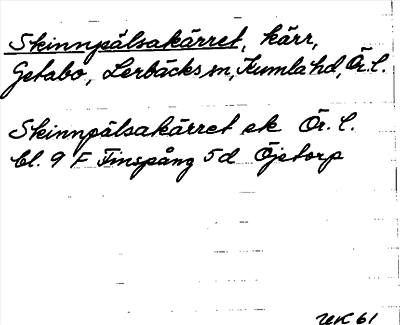 Skinnpälsakärret, kärr,
Getabo, Lerbäcks sn, Kumla hd, Ör. l.
Skinnpälsakärret ek Ör. l.
bl. 9 F Finspång 5d Öjetorp
UK 61